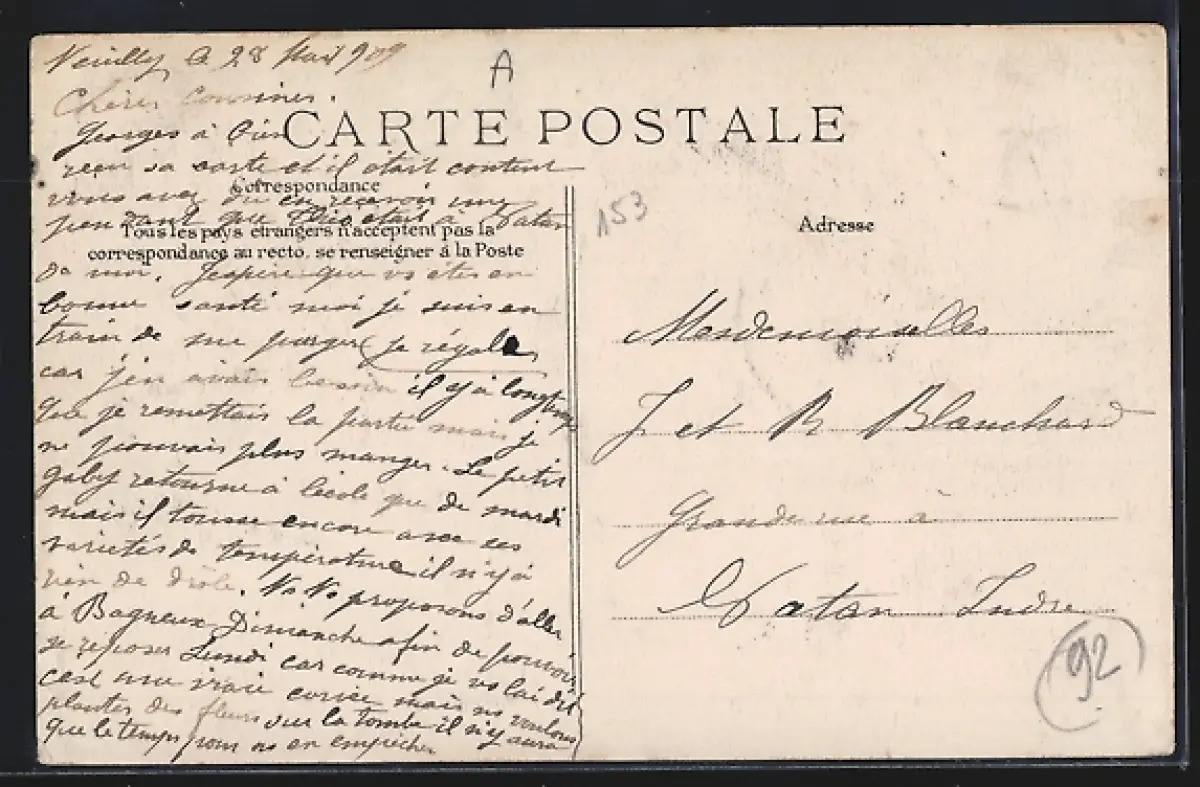 Neuilly le 28 Mai 909
A
Chères Cousines.
CARTE POSTALE
Georges à bien
reçu sa carte et il était content
Correspondance
vous avez dû en recevoir une
pendant que était à Vatan
Tous les pays étrangers n'acceptent pas la
correspondance au recto. se renseigner à la Poste
de moi. J'espère que vs êtes en
bonne santé moi je suis en
train de me purger (je régale)
car j'en avais besoin il y a longtemps
que je remettais la partie mais je
ne pouvais plus manger. Le petit
gaby retourne à lécole que de mardi
mais il tousse encore avec ces
varietés de température il n'y à
rien de drôle. Ns Ns proposons d'aller
à Bagneux Dimanche afin de pouvoir
se reposer Lundi car comme je vs lai dit
cest une vraie corvée mais ns voulons
planter des fleurs sur la tombe il n'y aura
que le temps pour ns en empêcher
153
Adresse
Mesdemoiselles
J et R Blanchard
Grande rue à
Vatan Indre
92